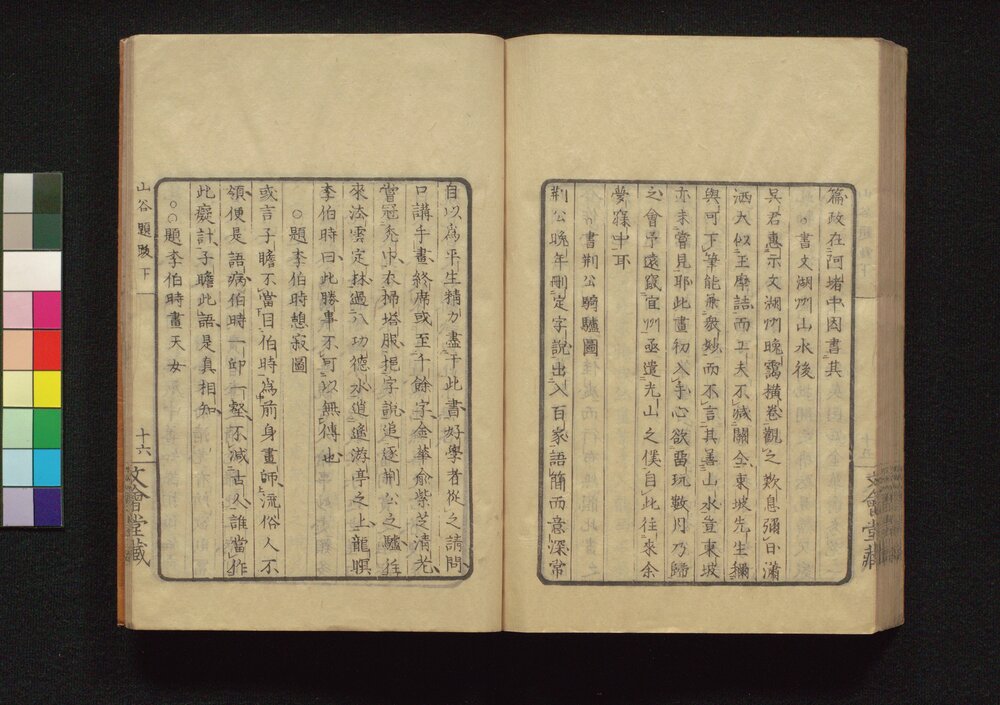 篇政在阿堵中因書其
○書文湖州山水後
吳君惠示文湖州晚靄橫卷觀之歎息彌日瀟
洒大似王摩詰而工夫不減關仝東坡先生稱
與可下筆能兼衆妙而不言其善山水豈東坡
亦未嘗見耶此畫初入手心欲留玩數月乃歸
之會予遠竄宜州亟遣光山之僕自此往來余
夢寐中耳
○書荆公騎驢圖
荆公晚年刪定字說出入百家語簡而意深常
自以爲平生精力盡于此書好學者從之請問
口講手畫終席或至千餘字金華俞紫芝清老
嘗冠禿巾衣掃塔服抱字說追逐荆公之驢往
來法雲定林過八功德水逍遙游亭之上龍瞑
李伯時曰此勝事不可以無傳也
○題李伯時憩寂圖
或言子瞻不當目伯時爲前身畫師流俗人不
領便是語病伯時一邱一壑不減古人誰當作
此癡計子瞻此語是真相知
○○題李伯時畫天女
山谷題跋 下
十六
文會堂藏
文會堂藏